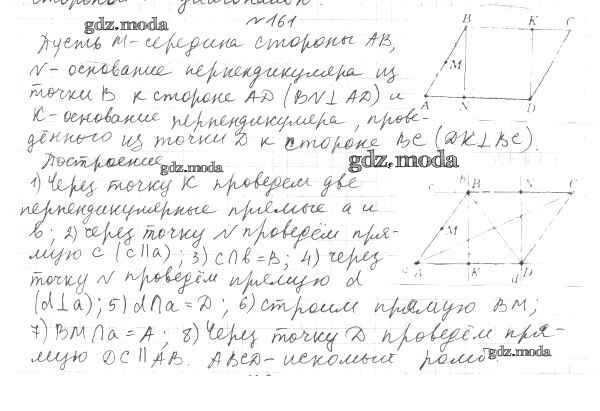 №161
gdz.moda
Пусть M-середина стороны AB,
N-основание перпендикуляра из
точки B к стороне AD (BN⊥AD) и
K-основание перпендикуляра, прове-
дённого из точки D к стороне BC (DK⊥BC).
Построение
gdz.moda
gdz.moda
1) Через точку K проведём две
перпендикулярные прямые a и
b; 2) через точку N проведём пря-
мую c (c||a); 3) c∩b=B; 4) через
точку N проведём прямую d
(d⊥a); 5) d∩a=D; 6) строим прямую BM;
7) BM∩a=A; 8) Через точку D проведём пря-
мую DC||AB. ABCD-искомый ромб.
gdz.moda
B K C
M
A N D
c b B N C
M
a A K d D